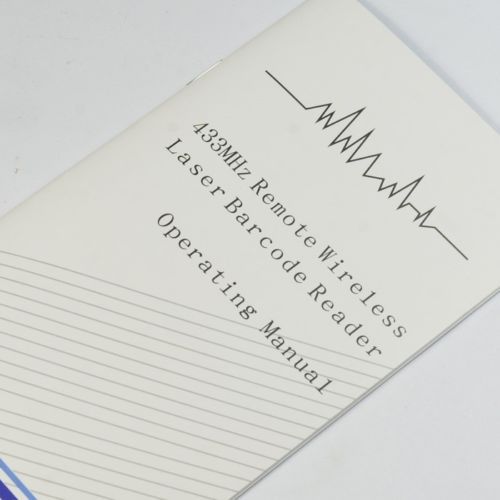 433MHz Remote Wireless
Laser Barcode Reader
Operating Manual